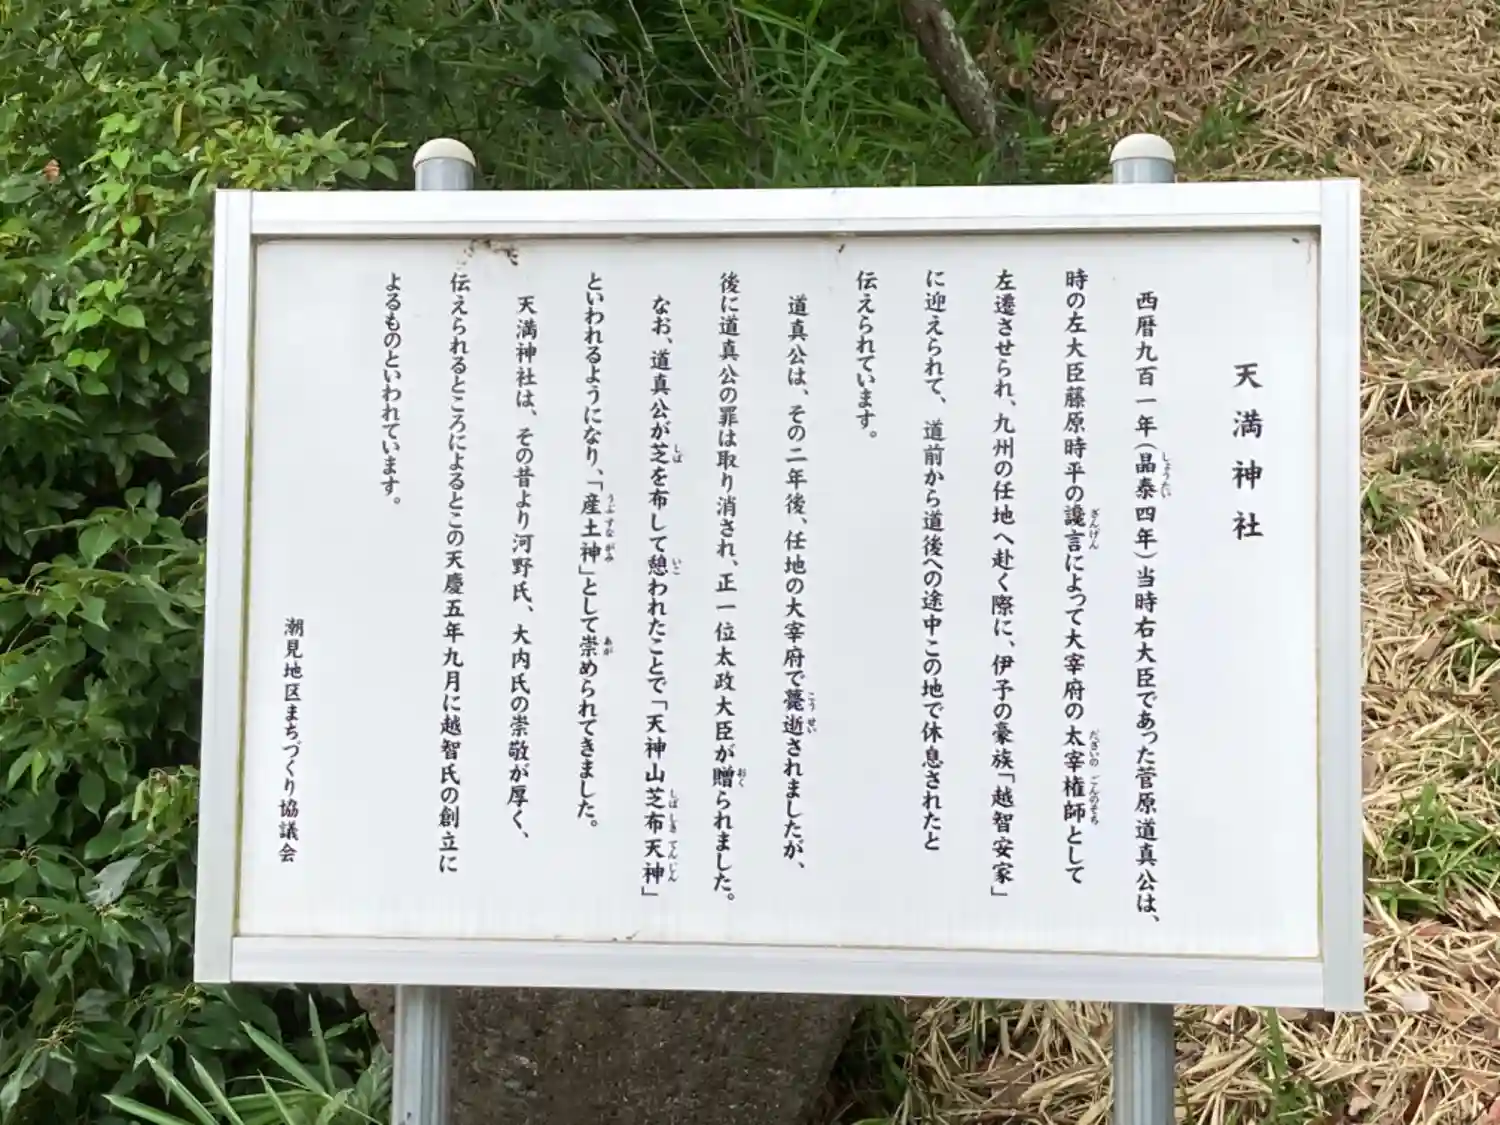 天満神社
西暦九百一年（晶泰四年）当時右大臣であった菅原道真公は、
時の左大臣藤原時平の讒言によって大宰府の太宰権師として
左遷させられ、九州の任地へ赴く際に、伊予の豪族「越智安家」
に迎えられて、道前から道後への途中この地で休息されたと
伝えられています。
道真公は、その二年後、任地の大宰府で薨逝されましたが、
後に道真公の罪は取り消され、正一位太政大臣が贈られました。
なお、道真公が芝を布して憩われたことで「天神山芝布天神」
といわれるようになり、「産土神」として崇められてきました。
天満神社は、その昔より河野氏、大内氏の崇敬が厚く、
伝えられるところによるとこの天慶五年九月に越智氏の創立に
よるものといわれています。
潮見地区まちづくり協議会